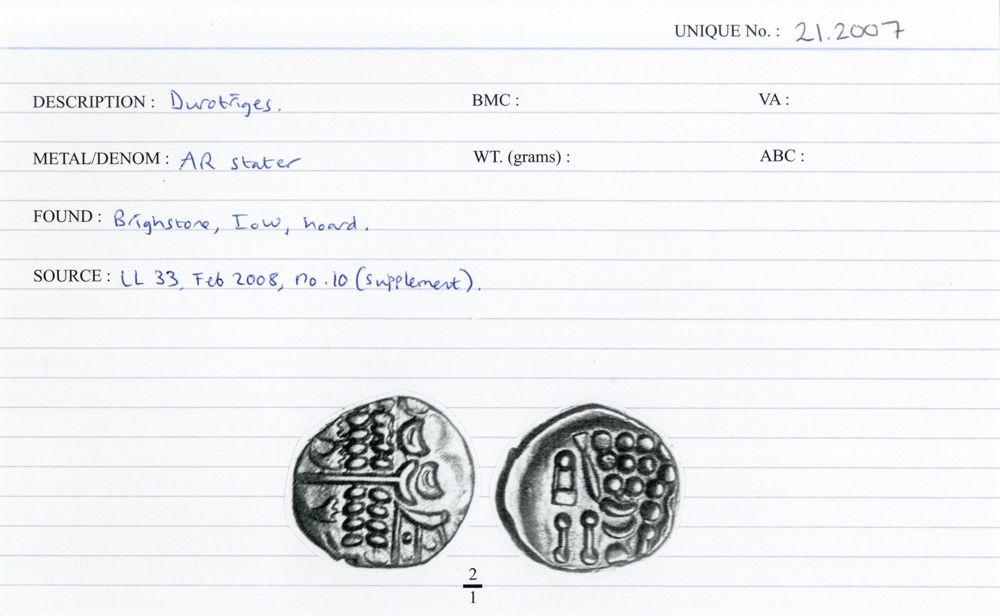 UNIQUE No. : 21.2007
DESCRIPTION : Durotriges. BMC : VA :
METAL/DENOM : AR stater WT. (grams) : ABC :
FOUND : Brighstone, IoW, hoard.
SOURCE : LL 33, Feb 2008, no. 10 (supplement).
2
1